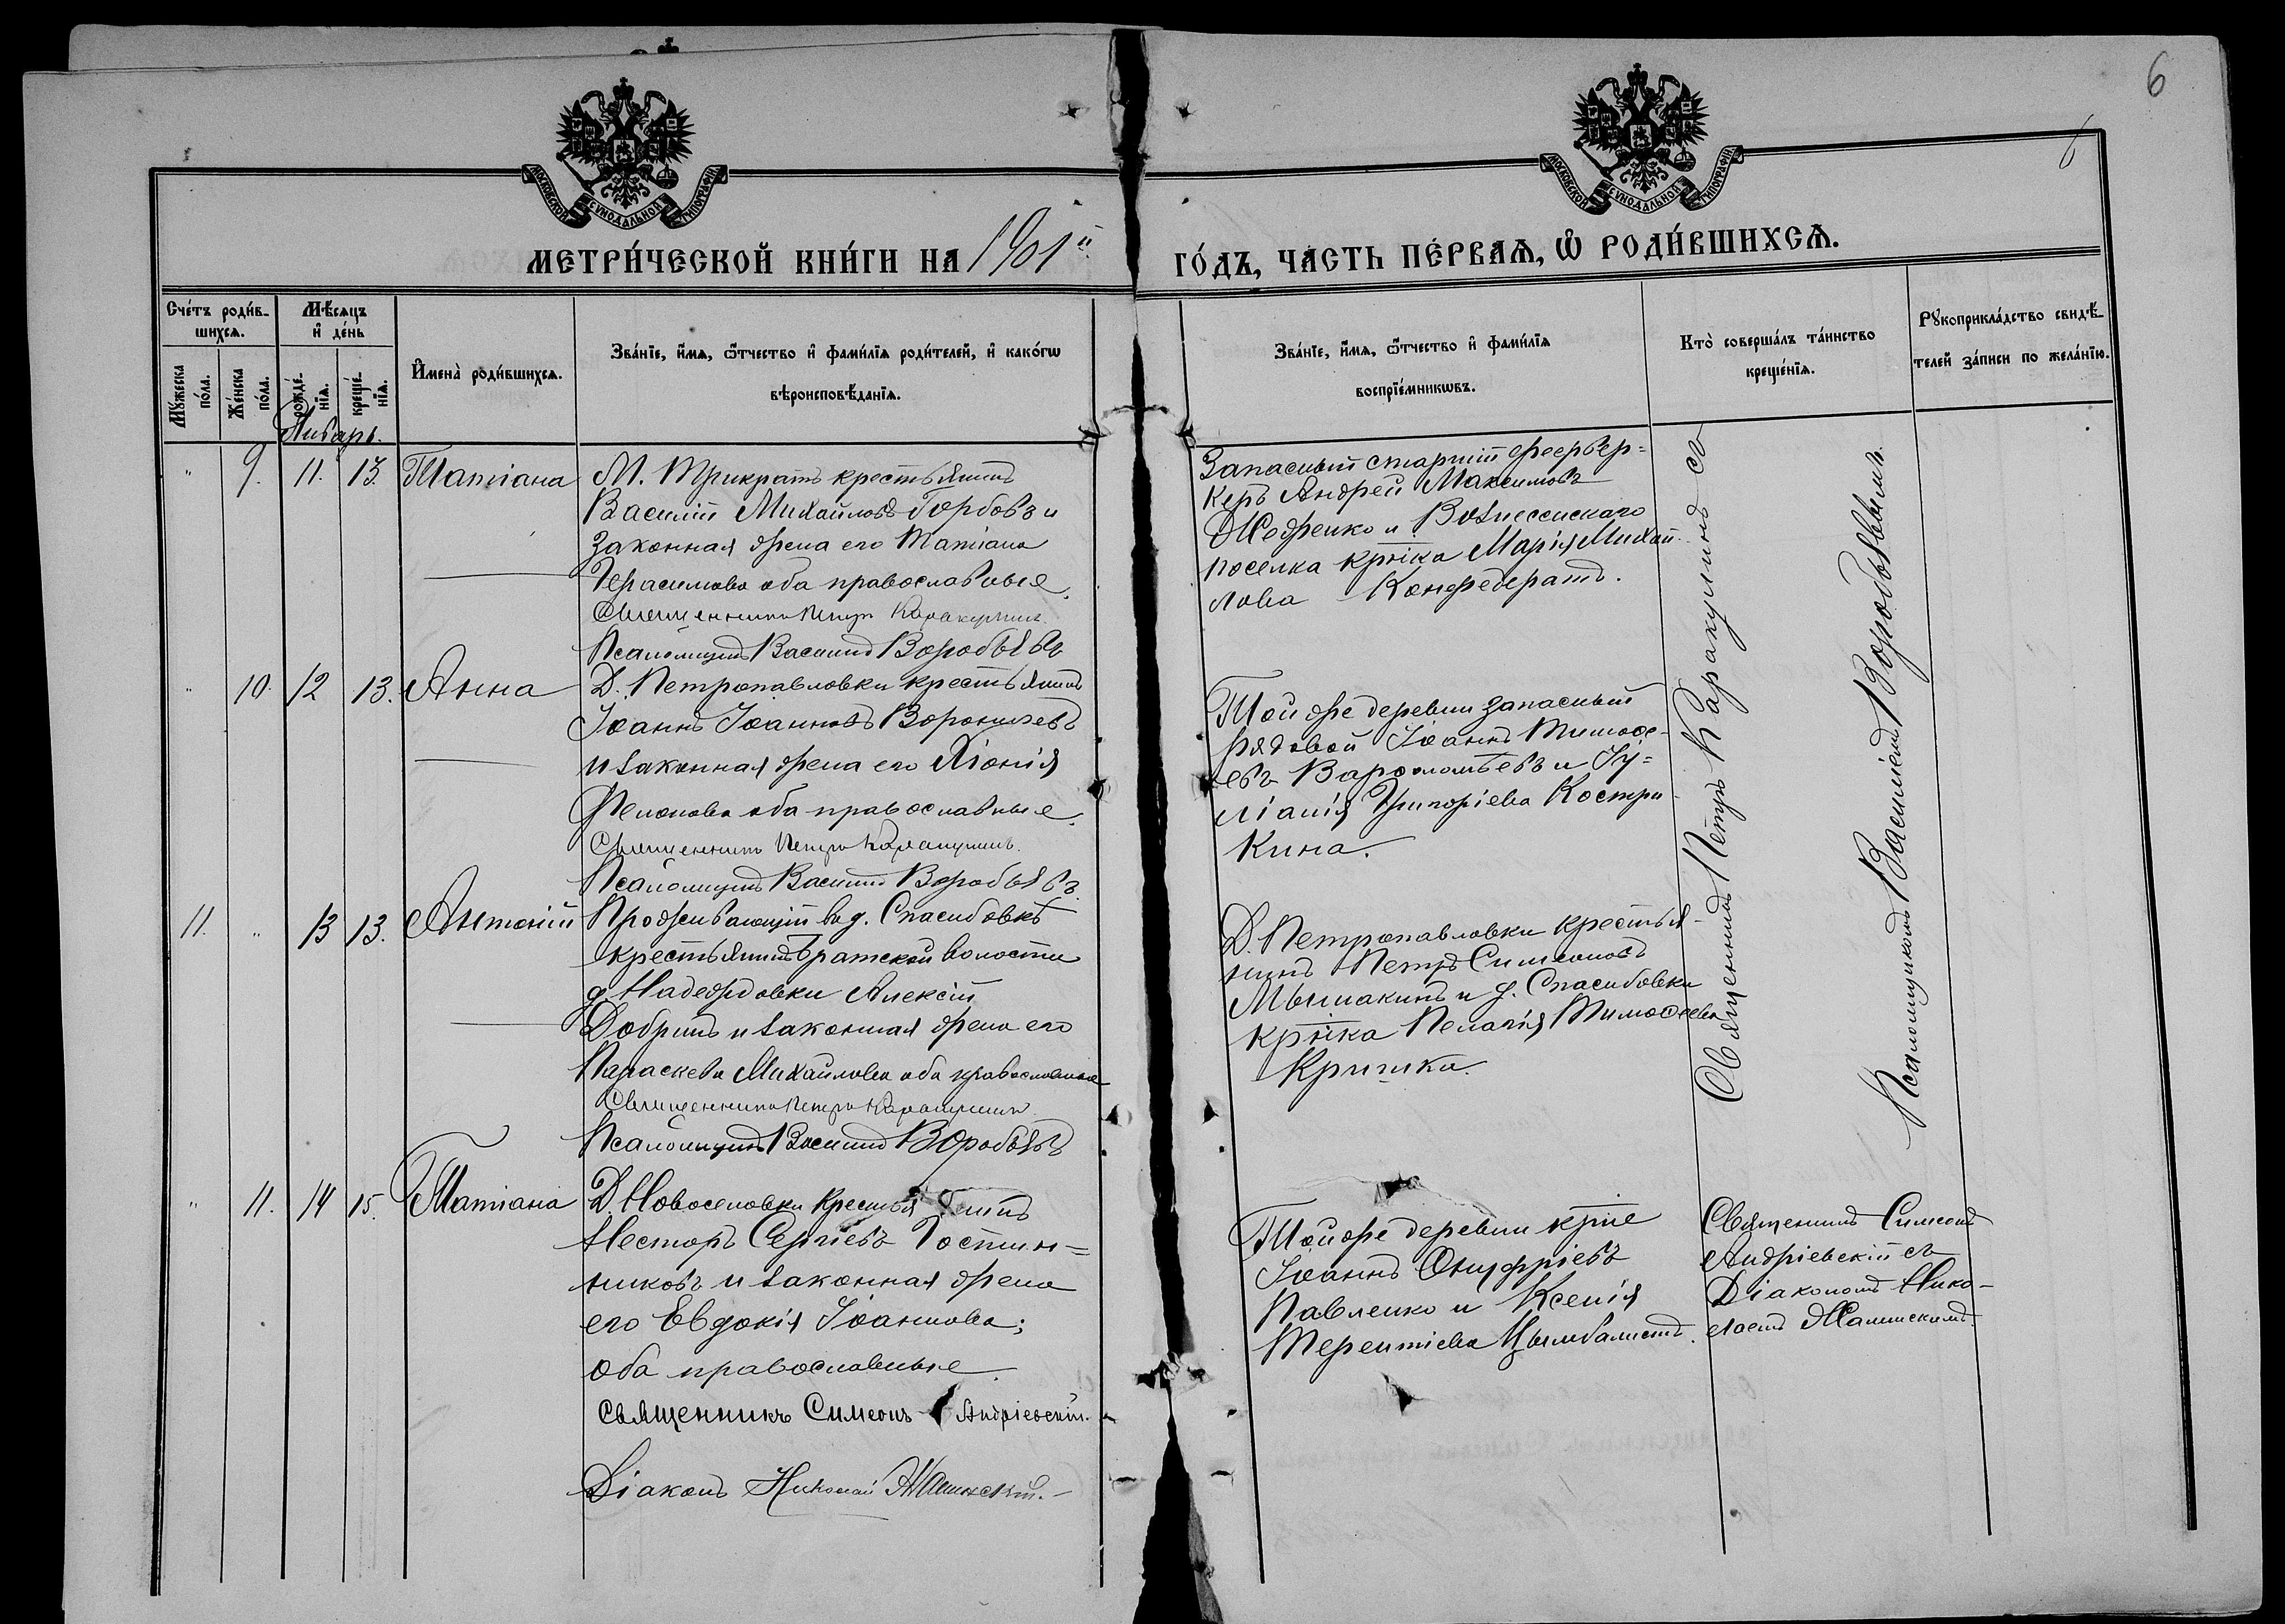 6
6
МОСКОВСКОЙ СУНОДАЛЬНОЙ ТИПОГРАФІИ
МОСКОВСКОЙ СУНОДАЛЬНОЙ ТИПОГРАФІИ
МЕТРИ́ЧЕСКОЙ КНИ́ГИ НА 1901й ГО́ДЪ, ЧА́СТЬ ПЕ́РВАѦ, Ѡ РОДИ́ВШИХСѦ.
Сче́тъ роди́в-
шихсѧ.
Мꙋ́жеска по́ла.
Же́нска по́ла.
Мѣ́сѧцъ
и де́нь
рожде́нїѧ.
креще́нїѧ.
Имена̀ роди́вшихсѧ.
Зва́нїе, и́мѧ, ѻ́тчество и фами́лїѧ роди́телей, и како́гѡ
вѣроисповѣ́данїѧ.
Зва́нїе, и́мѧ, ѻ́тчество и фами́лїѧ
воспрїе́мникѡвъ.
Кто̀ соверша́лъ та́инство
креще́нїѧ.
Рꙋкоприкла́дство свидѣ́-
телей за́писи по жела́нїю.
Январь.
" 9. 11. 13. Татіана
М. Трикратъ крестьянинъ
Василій Михайловъ Горбовъ и
законная жена его Татіана
Герасимова оба православные.
Священникъ Петръ Каракулинъ.
Псаломщикъ Василій Воробьевъ
Запасный старшій феервер=
керъ Андрей Максимовъ
Жодренко и Вознесенскаго
поселка кр-ка Марія Михай-
лова Конфедератъ.
" 10. 12 13. Анна
Д. Петропавловки крестьянинъ
Іоаннъ Іоанновъ
и законная жена его Хіонія
оба православные.
Священникъ Петръ Каракулинъ.
Псаломщикъ Василій Воробьевъ
Той же деревни запасный
рядовой Іоаннъ Тимоѳе-
евъ Варѳоломѣевъ и Іу=
ліанія Григоріева Костри-
кина.
11. " 13 13. Антоній
Проживающій въ д. Спасибовкѣ
крестьянинъ Братской волости
д. Надеждовки Алексій
Добринъ и законная жена его
Параскева Михайлова оба православные
Священникъ Петръ Каракулинъ
Псаломщикъ Василій Воробьевъ
Д. Петропавловки крестья-
нинъ Петръ Симеоновъ
Мышакинъ и д. Спасибовки
кр-ка Пелагія Тимоѳеева
Кришка.
Священникъ Петръ Каракулинъ съ
Псаломщикомъ Василіемъ Воробьевымъ.
" 11. 14 15. Татіана
Д. Новоселовки крестьянинъ
Несторъ Сергіевъ Гостин=
никовъ и законная жена
его Евдокія Іоаннова;
оба православные.
Священникъ Симеонъ Андріевскій.
Діаконъ Николай
Той же деревни кр-не
Іоаннъ Онуфріевъ
Павленко и Ксенія
Терентіева Цымбалистъ.
Священникъ Симеонъ
Андріевскій съ
Діакономъ Нико-
лаемъ